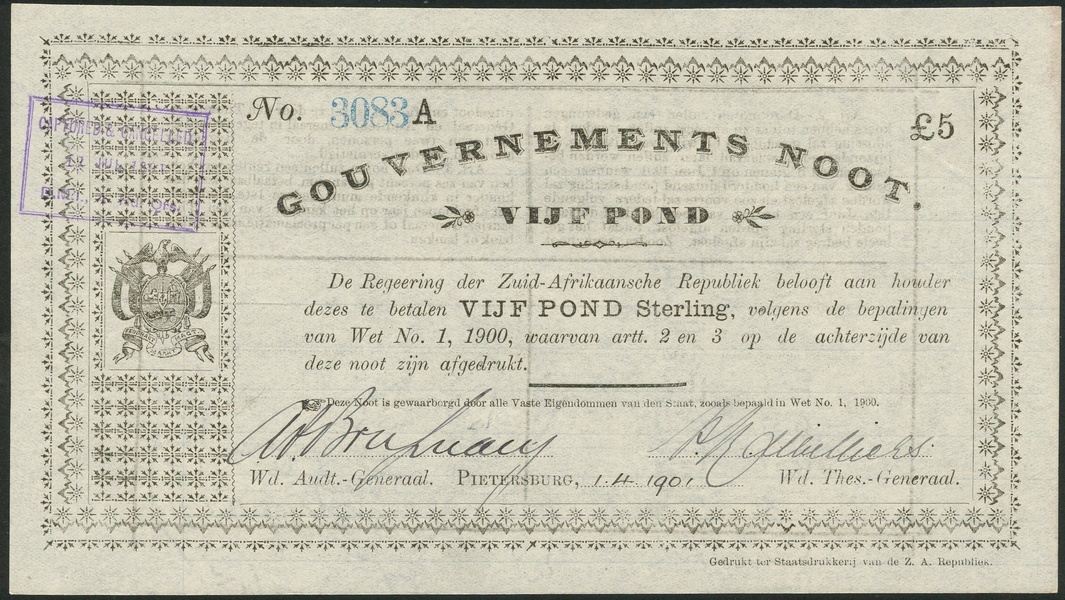 No. 3083 A
£5
GOUVERNEMENTS NOOT.
VIJF POND
De Regeering der Zuid-Afrikaansche Republiek belooft aan houder
dezes te betalen VIJF POND Sterling, volgens de bepalingen
van Wet No. 1, 1900, waarvan artt. 2 en 3 op de achterzijde van
deze noot zijn afgedrukt.
Deze Noot is gewaarborgd door alle Vaste Eigendommen van den Staat, zooals bepaald in Wet No. 1, 1900.
Wd. Audt.-Generaal. PIETERSBURG, 1.4.1901. Wd. Thes.-Generaal.
Gedrukt ter Staatsdrukkerij van de Z. A. Republiek.